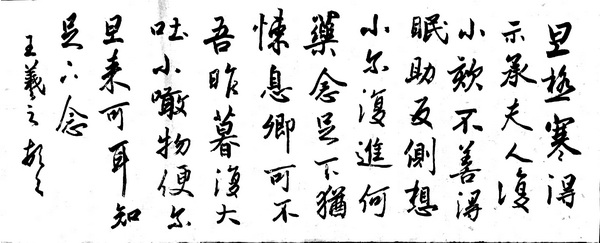 旦極寒得
示承夫人復
小欬不善得
眠助反側想
小尔復進何
藥念足下猶
悚息卿可不
吾昨暮復大
吐小噉物便尔
旦来可耳知
足下念
王羲之頓首